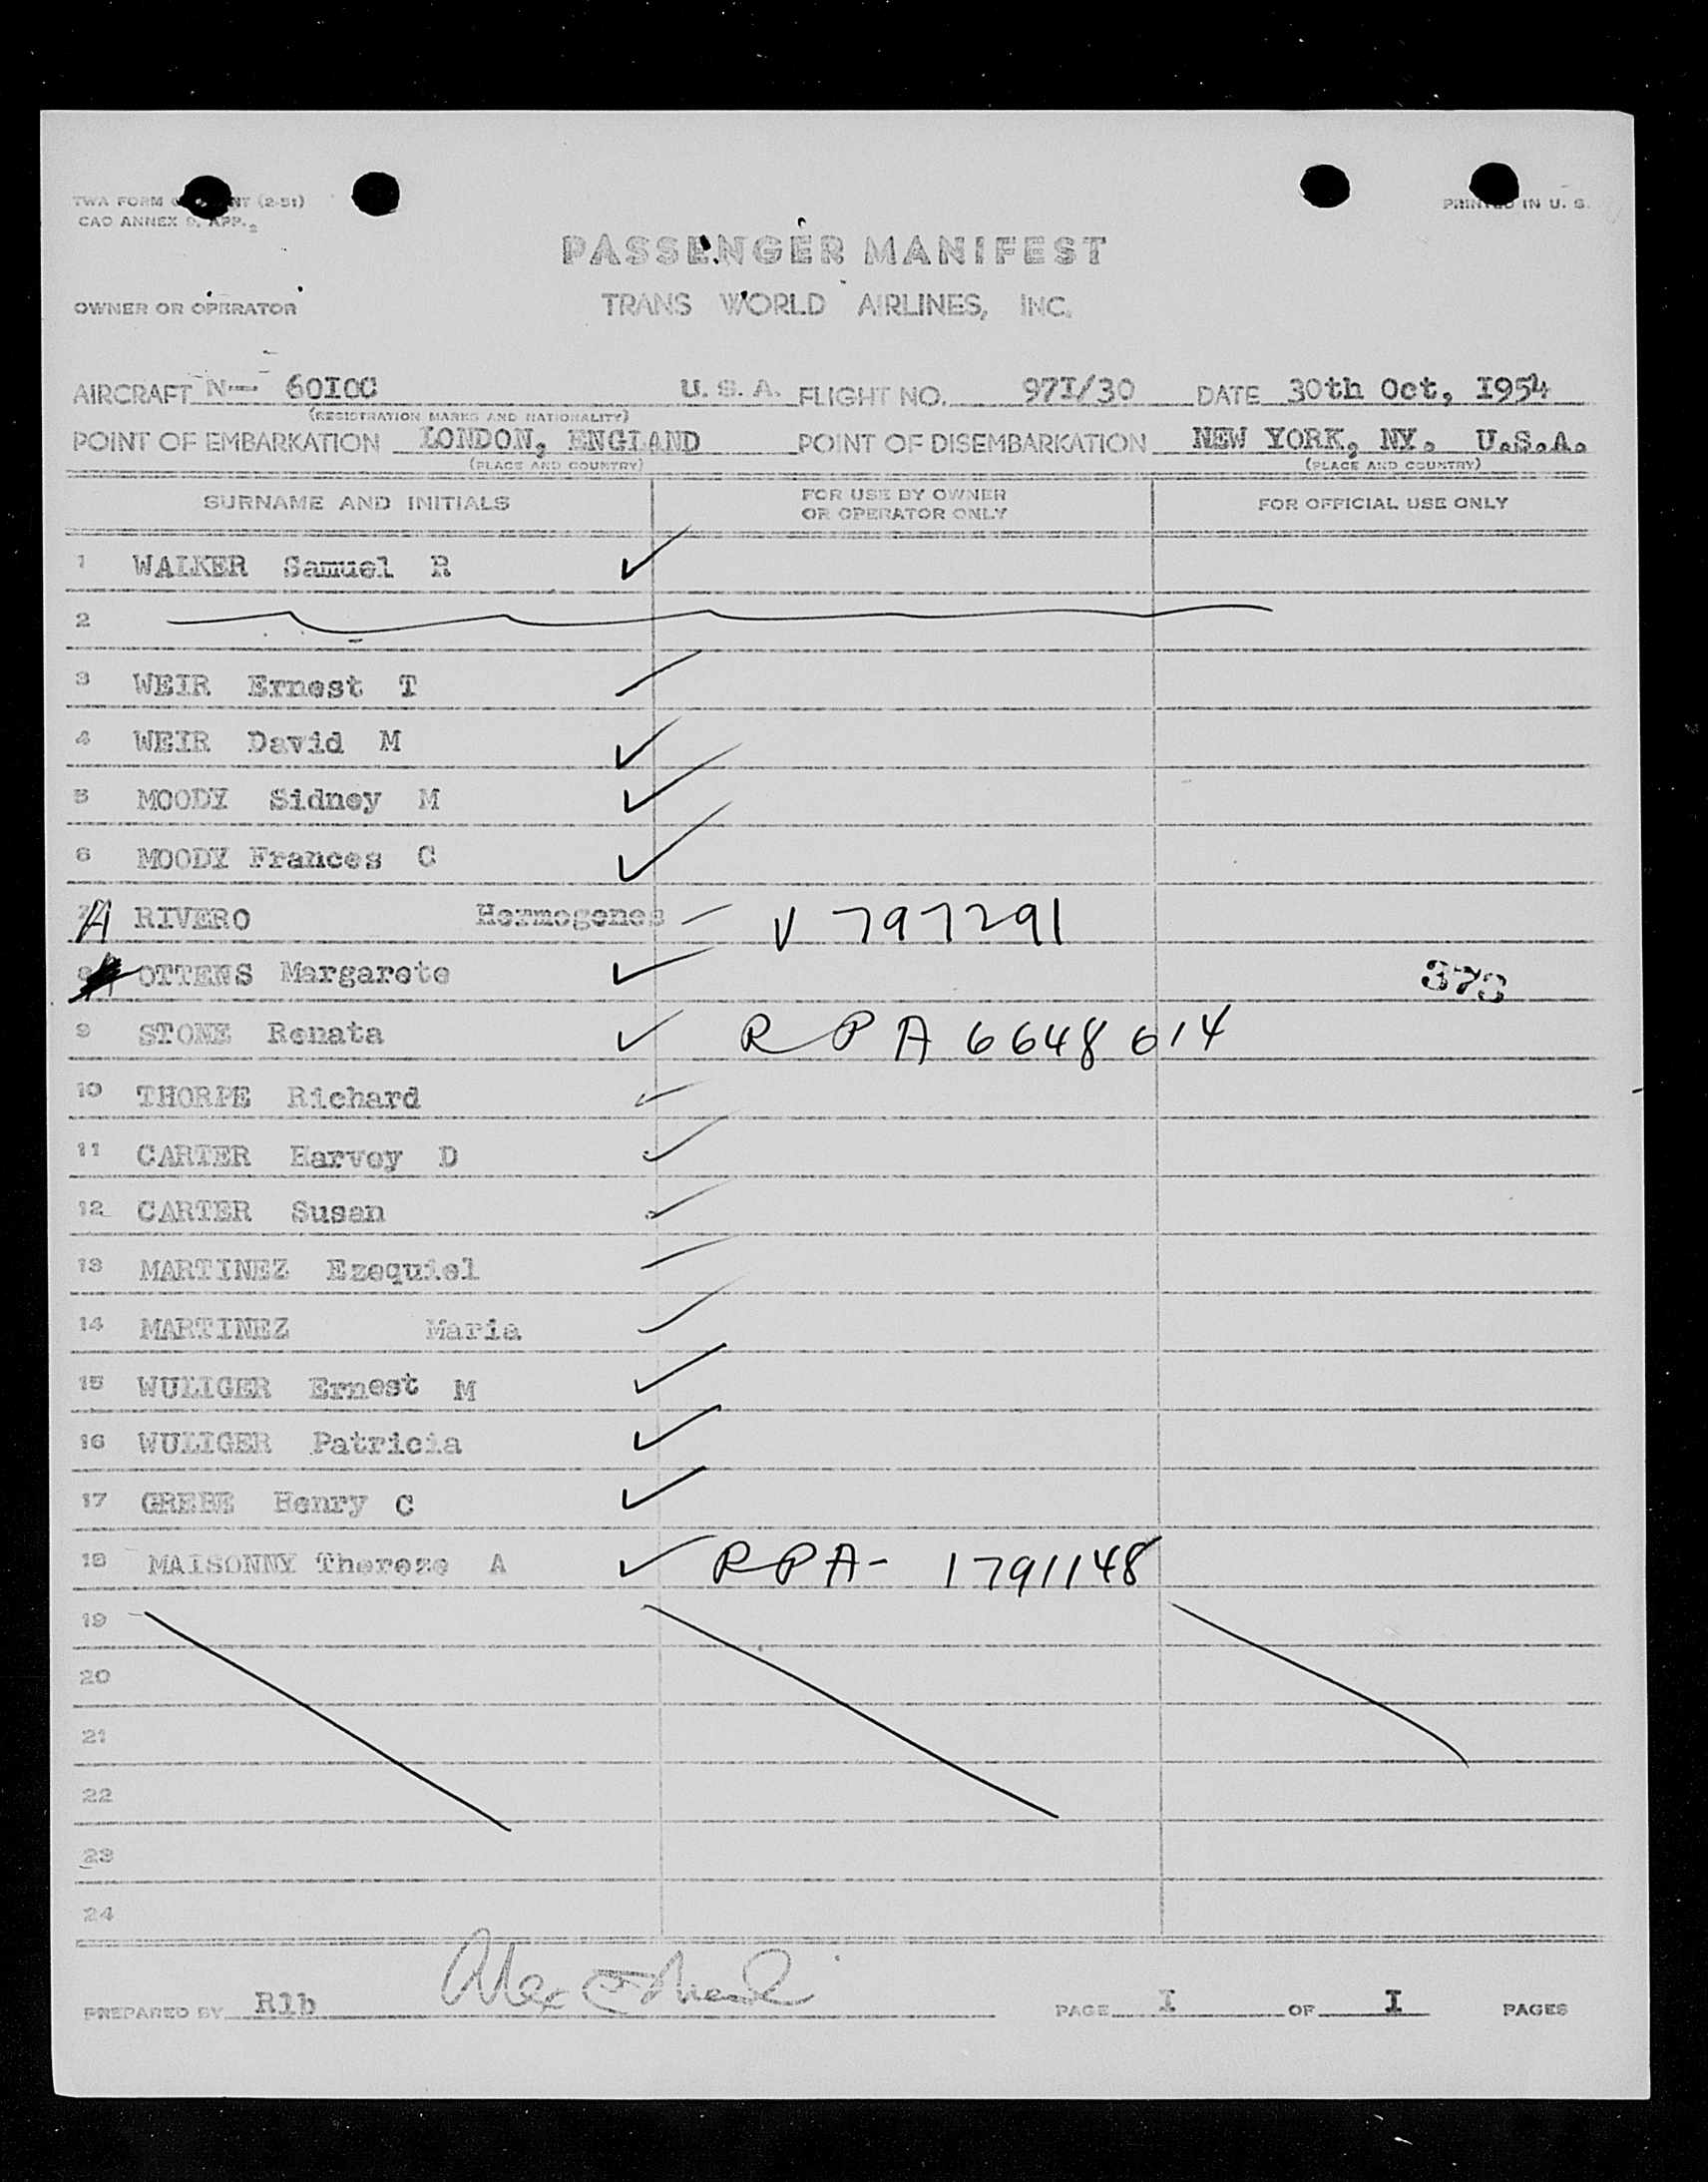 TWA FORM NT (2-51)
CAO ANNEX 9, APP. 2
PRINTED IN U. S.
PASSENGER MANIFEST
OWNER OR OPERATOR TRANS WORLD AIRLINES, INC.
AIRCRAFT N— 60I0C U. S. A. FLIGHT NO. 97I/30 DATE 30th Oct, I954
(REGISTRATION MARKS AND NATIONALITY)
POINT OF EMBARKATION LONDON, ENGLAND POINT OF DISEMBARKATION NEW YORK, NY. U.S.A.
(PLACE AND COUNTRY) (PLACE AND COUNTRY)
SURNAME AND INITIALS FOR USE BY OWNER OR OPERATOR ONLY FOR OFFICIAL USE ONLY
1 WALKER Samuel R ✓
2
3 WEIR Ernest T ✓
4 WEIR David M ✓
5 MOODY Sidney M ✓
6 MOODY Frances C ✓
A RIVERO Hermogenes – V 797291
OTTENS Margarete ✓ 373
9 STONE Renata ✓ RPA 6648614
10 THORPE Richard ✓
11 CARTER Harvey D ✓
12 CARTER Susan ✓
13 MARTINEZ Ezequiel ✓
14 MARTINEZ Maria ✓
15 WULIGER Ernest M ✓
16 WULIGER Patricia ✓
17 GREBE Henry C ✓
18 MAISONNY Thereze A ✓ RPA- 1791148
19
20
21
22
23
24
PREPARED BY Rlb PAGE I OF I PAGES